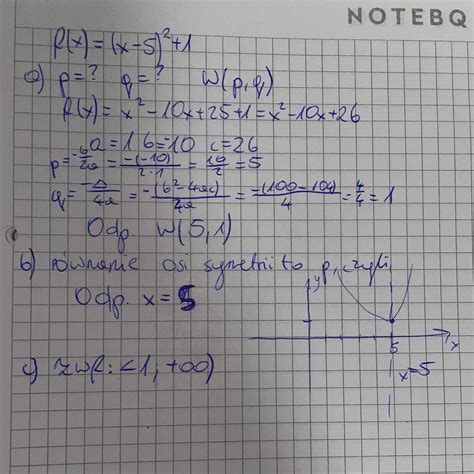 NOTEBQ
f(x) = (x-5)²+1
a) p=? q=? W(p,q)
f(x) = x²-10x+25+1 = x²-10x+26
a=1 b=10 c=26
p = -b/2a = -(-10)/2·1 = 10/2 = 5
q = -Δ/4a = -(b²-4ac)/4a = -(100-104)/4 = 4/4 = 1
Odp. W(5,1)
b) równanie osi symetrii to p, czyli
Odp. x = 5
y
5
x
x=5
c) zwf: <1, +∞)